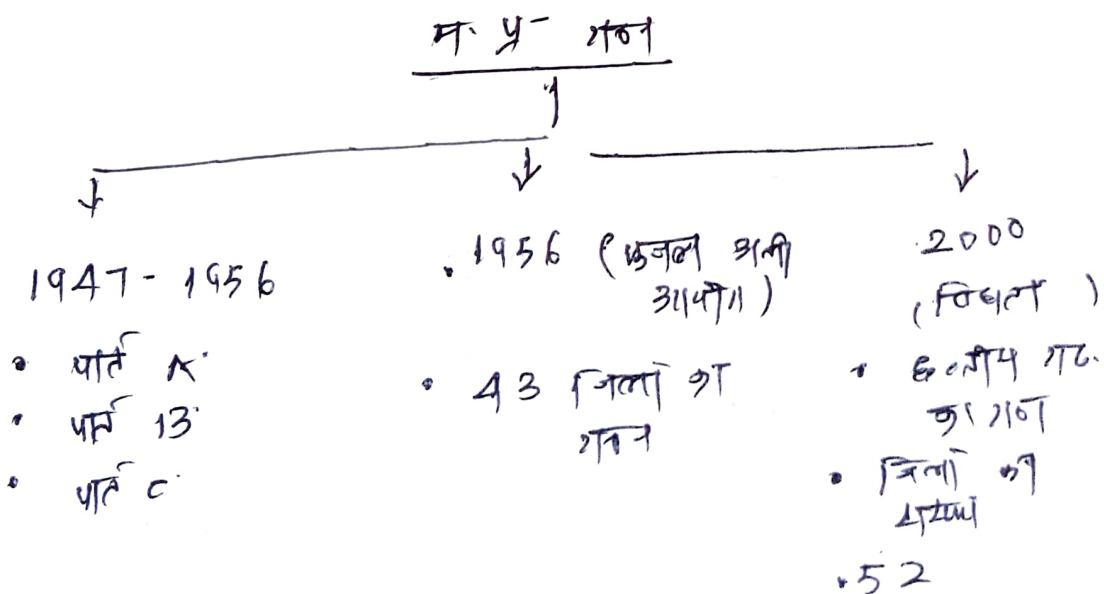 म. प्र- गठन
1947 - 1956
• पार्ट A
• पार्ट B
• पार्ट C
. 1956 (फजल अली
आयोग)
• 43 जिलों का
गठन
. 2000
( )
• छत्तीसगढ़.
का गठन
• जिलों की
संख्या
. 52